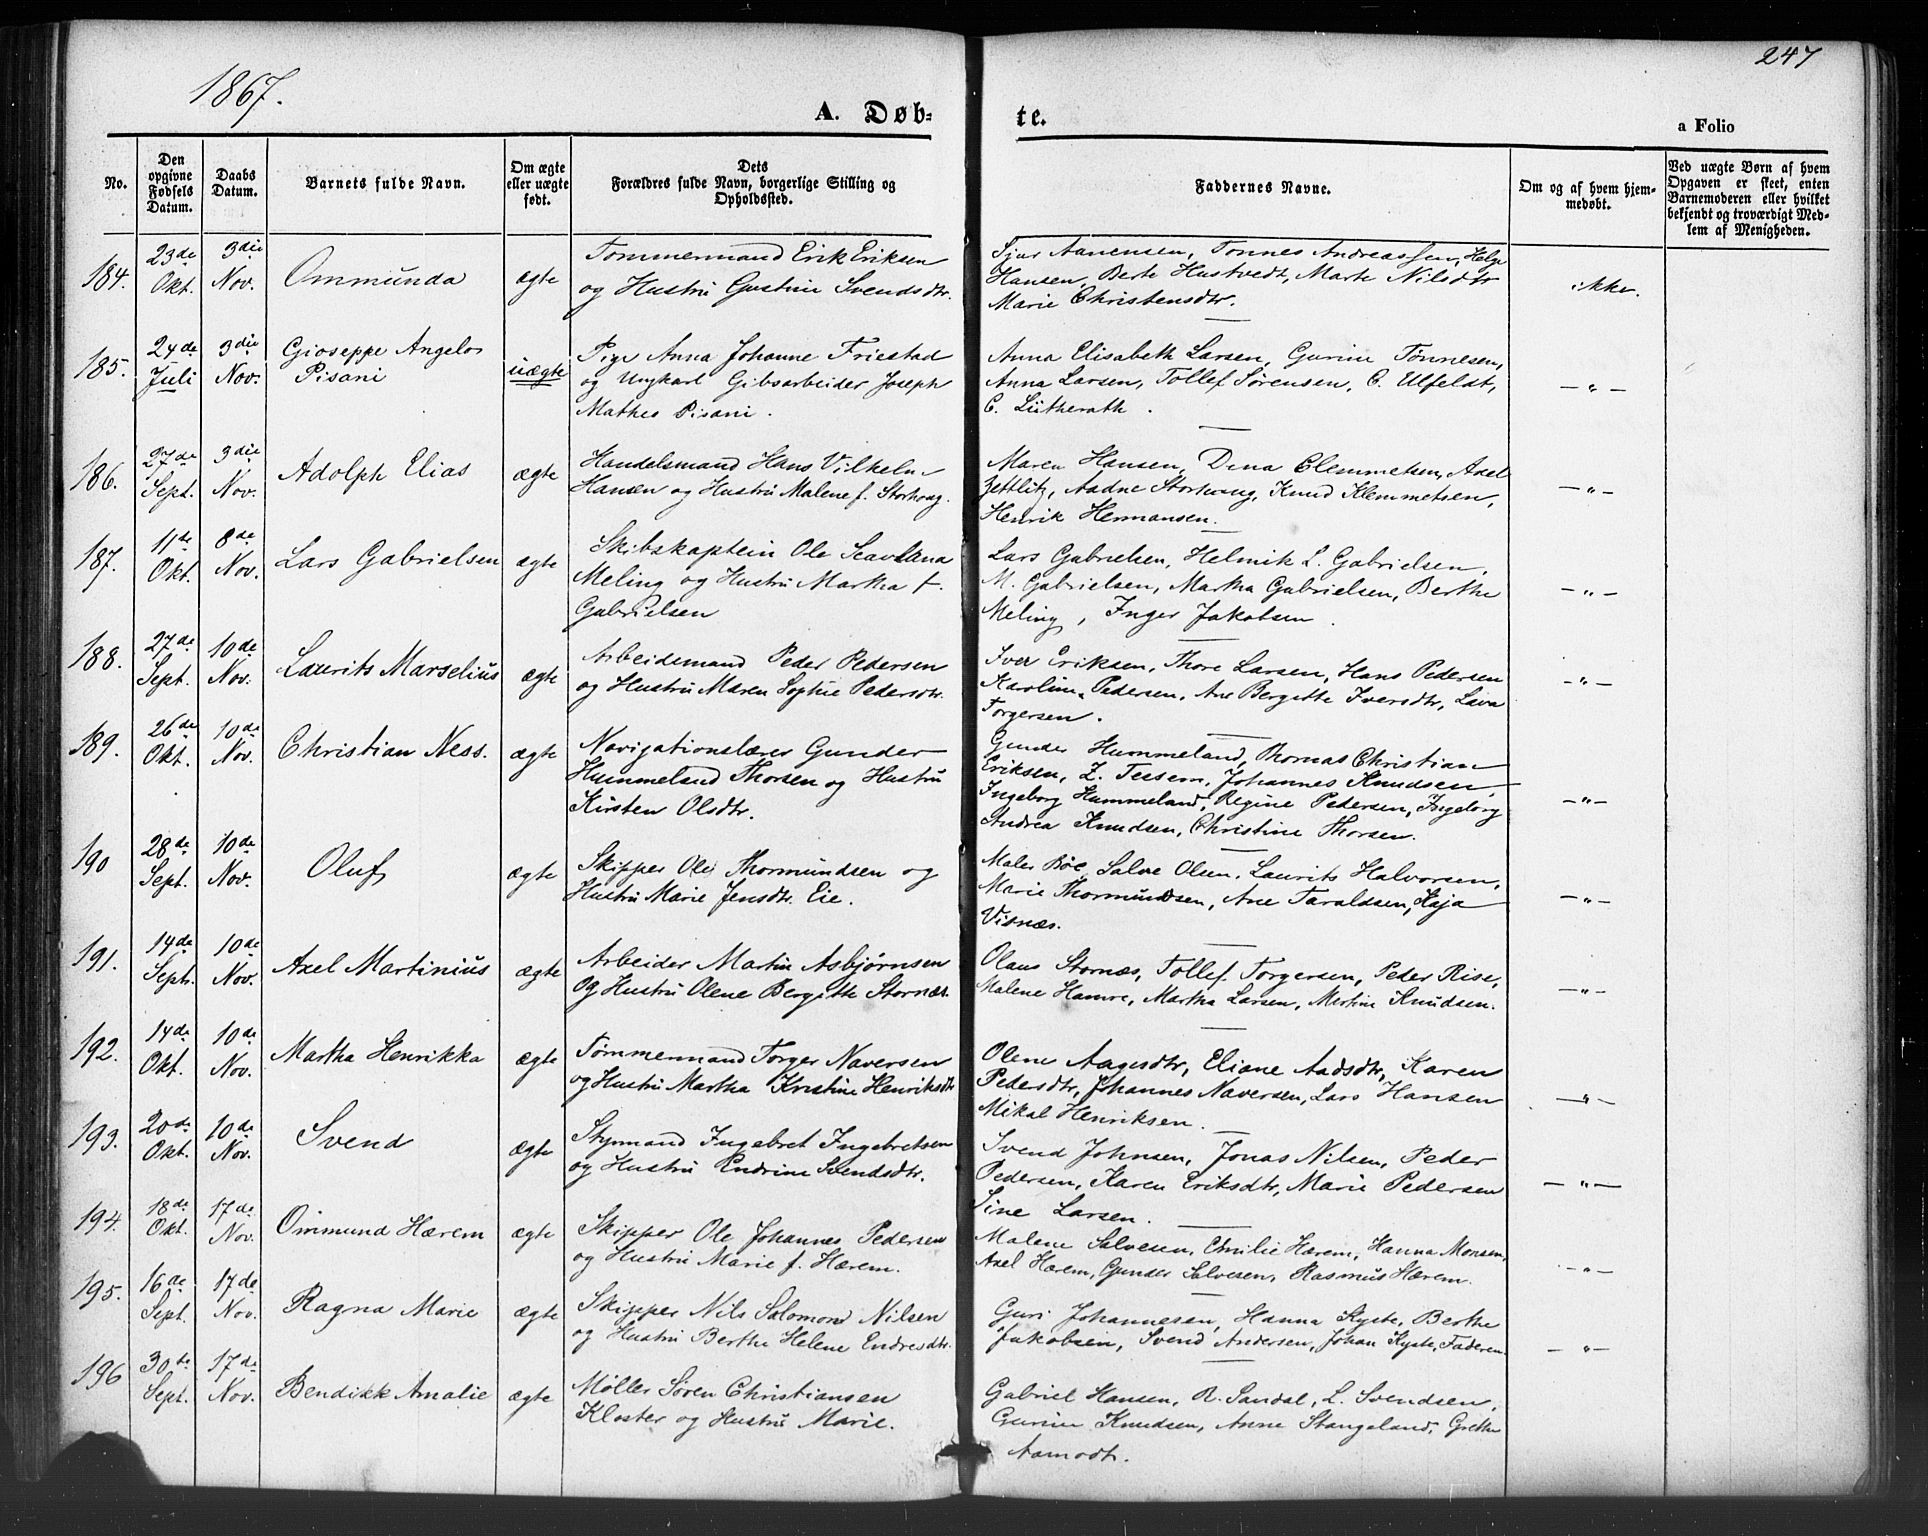 1867.
247
A. Døb-
te.
a Folio
No.
Den opgivne Fødsels Datum.
Daabs Datum.
Barnets fulde Navn.
Om ægte eller uægte født.
Dets Forældres fulde Navn, borgerlige Stilling og Opholdssted.
Faddernes Navne.
Om og af hvem hjemmedøbt.
Ved uægte Børn af hvem Opgaven er skeet, enten Barnemoderen eller hvilket bekjendt og troværdigt Medlem af Menigheden.
184. 23de Okt. 3die Nov. Ommunda ægte
Tømmermand Erik Eriksen
og Hustru Gustine Svendsdtr.
Sjur Aanensen, Tønnes Andreassen, Helge
Hansen, Berte Hustvedt, Marte Nilsdtr
Marie Christensdtr.
ikke.
185. 24de Juli 3die Nov. Gioseppe Angelo
Pisani uægte
Pige Anna Johanne Friestad
og Ungkarl Gibsarbeider Joseph
Mathes Pisani.
Anna Elisabeth Larsen, Gurine Tønnesen,
Anna Larsen, Tollef Sørensen, C. Ulfeldt,
C. Lütherath.
— " —
186. 27de Sept. 3die Nov. Adolph Elias ægte
Handelsmand Hans Vilhelm
Hansen og Hustru Malene f. Storhoug.
Maren Hansen, Dina Clemmetsen, Axel
Zettlitz, Aadne Storhoug, Knud Klemmetsen,
Henrik Hermansen.
— " —
187. 11te Okt. 8de Nov. Lars Gabrielsen ægte
Skibskaptein Ole Scavlana
Meling og Hustru Martha f.
Gabrielsen
Lars Gabrielsen, Helmik L. Gabrielsen,
M. Gabrielsen, Martha Gabrielsen, Berthe
Meling, Inger Jakobsen.
— " —
188. 27de Sept. 10de Nov. Laurits Marselius ægte
Arbeidsmand Peder Pedersen
og Hustru Maren Sophie Pedersdtr.
Iver Eriksen, Thore Larsen, Hans Pedersen
Karoline Pedersen, Ane Bergitte Iversdtr, Lava
Torgersen.
— " —
189. 26de Okt. 10de Nov. Christian Ness. ægte
Navigationslærer Gunder
Hummeland Thorsen og Hustru
Kirsten Olsdtr.
Gunder Hummeland, Thomas Christian
Eriksen, Z. Teesem, Johannes Knudsen,
Ingeborg Hummeland, Regine Pedersen, Ingeborg
Andrea Knudsen, Christine Thorsen.
— " —
190 28de Sept. 10de Nov. Oluf ægte
Skipper Ole Thormundsen og
Hustru Marie Jensdtr. Eie.
Maler Bøe, Salve Olsen, Laurits Halvorsen,
Marie Thormundsen, Ane Taraldsen, Kaja
Visnæs.
— " —
191. 14de Sept. 10de Nov. Axel Martinius ægte
Arbeider Martin Asbjørnsen
og Hustru Olene Bergitte Stornæs.
Olaus Stornæs, Tollef Torgersen, Peder Rise,
Malene Hamre, Martha Larsen, Martine Knudsen.
— " —
192. 14de Okt. 10de Nov. Martha Henrikka ægte
Tømmermand Torger Naversen
og Hustru Martha Kristine Henriksdtr
Olene Aagesdtr, Eliane Aadsdtr, Karen
Pedersdtr, Johannes Naversen, Lars Hansen
Mikal Henriksen.
— " —
193. 20de Okt. 10de Nov. Svend ægte
Styrmand Ingebret Ingebretsen
og Hustru Endrine Svendsdtr.
Svend Johnsen, Jonas Nilsen, Peder
Pedersen, Karen Eriksdtr, Marie Pedersen
Sine Larsen.
— " —
194. 18de Okt. 17de Nov. Ommund Hærem ægte
Skipper Ole Johannes Pedersen
og Hustru Marie f. Hærem.
Malene Salvesen, Emilie Hærem, Hanna Monsen,
Axel Hærem, Gunder Salvesen, Rasmus Hærem.
— " —
195. 16de Sept. 17de Nov. Ragna Marie ægte
Skipper Nils Salomon Nilsen
og Hustru Berthe Helene Endresdtr.
Guri Johannesen, Hanna Kyste, Berthe
Jakobsen, Svend Andersen, Johan Kyste, Faderen
— " —
196 30te Sept. 17de Nov. Bendikk Amalie ægte
Møller Søren Christiansen
Kloster og Hustru Marie.
Gabriel Hansen, R. Sandal, L. Svendsen,
Gurine Knudsen, Anne Stangeland, Grethe
Aamodt.